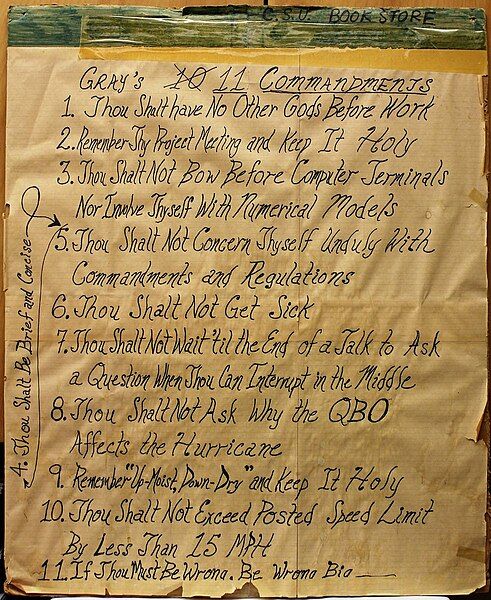 C.S.U. BOOK STORE
GRAY'S 10 11 COMMANDMENTS
1. Thou Shalt have No Other Gods Before Work
2. Remember Thy Project Meeting and Keep It Holy
3. Thou Shalt Not Bow Before Computer Terminals
Nor Involve Thyself With Numerical Models
4. Thou Shalt Be Brief and Concise
5. Thou Shalt Not Concern Thyself Unduly With
Commandments and Regulations
6. Thou Shalt Not Get Sick
7. Thou Shalt Not Wait 'til the End of a Talk to Ask
a Question When Thou Can Interrupt in the Middle
8. Thou Shalt Not Ask Why the QBO
Affects the Hurricane
9. Remember "Up-Moist, Down-Dry" and Keep It Holy
10. Thou Shalt Not Exceed Posted Speed Limit
By Less Than 15 MPH
11. If Thou Must Be Wrong, Be Wrong Big